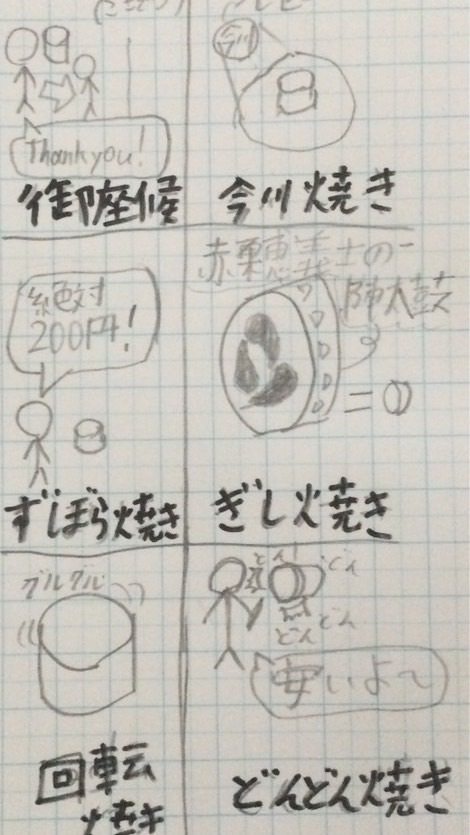 Thank you!
御座候
今川
今川焼き
絶対
200円!
ずぼら焼き
赤穂義士の
陣太鼓
ぎし焼き
グルグル
回転
焼き
どん!
どん
どん
どん
安いよ〜
どんどん焼き